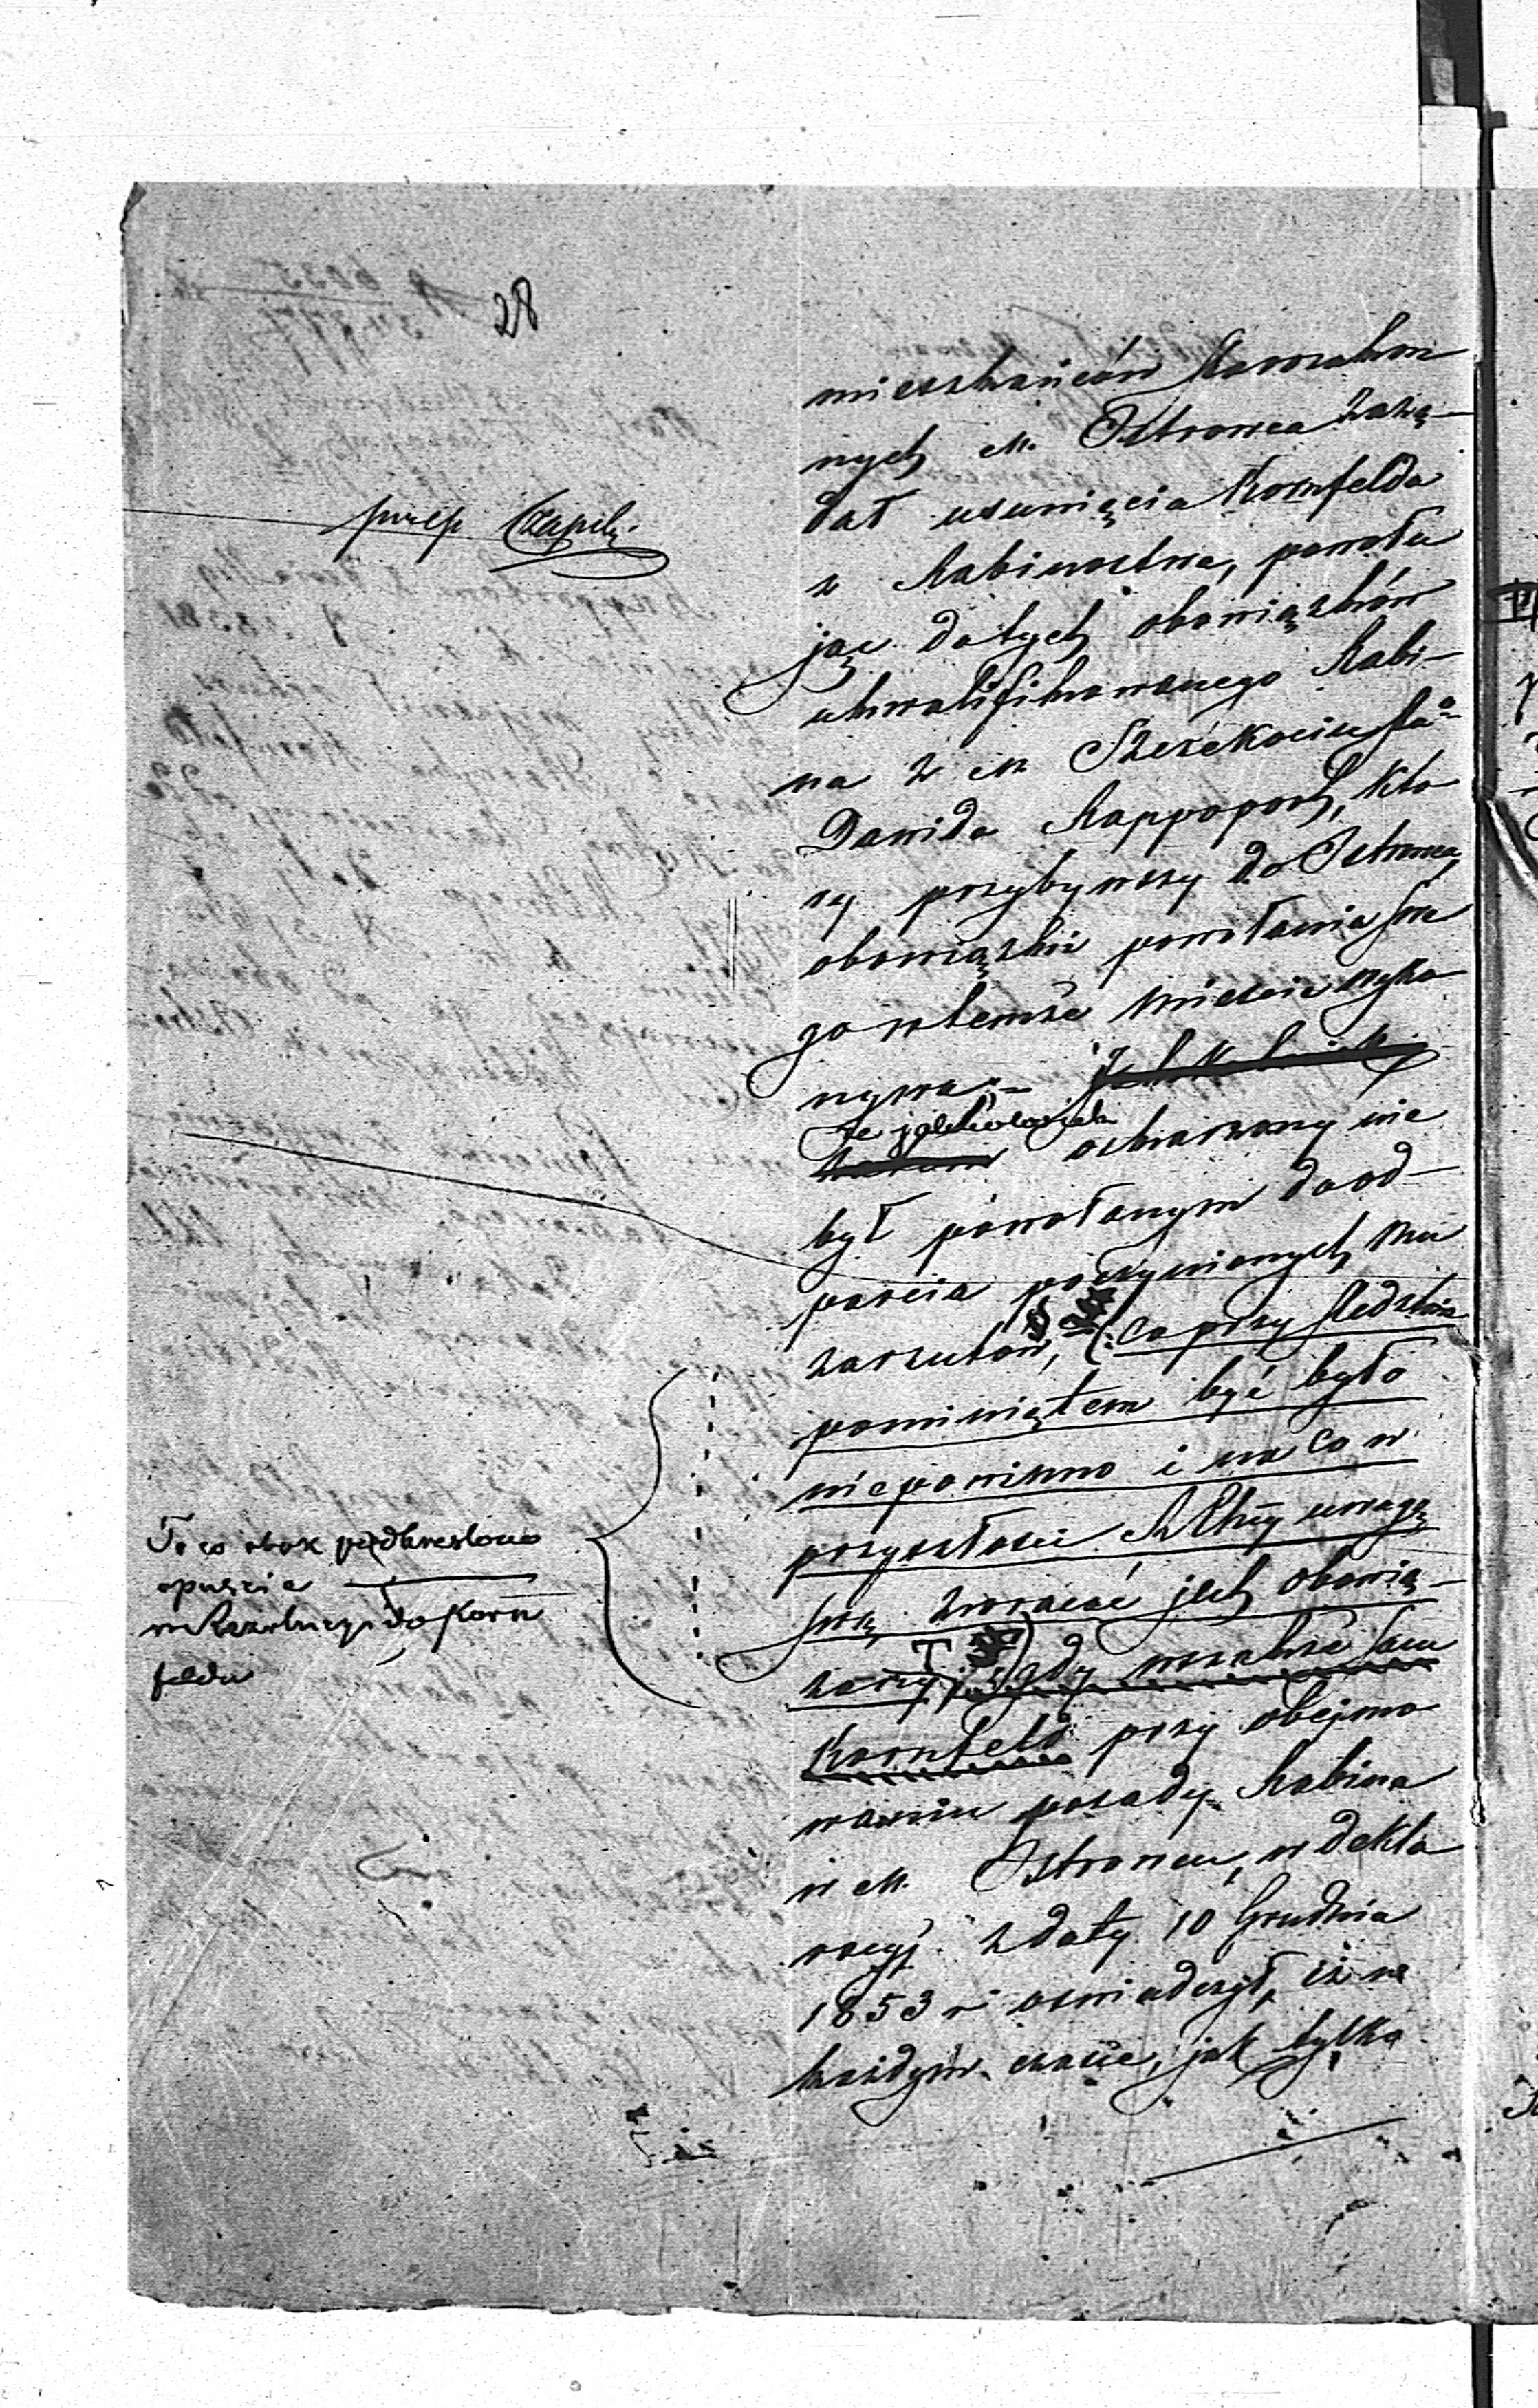 28
przep Czapli
mieszkańców Starozakon
nych M. Ostrowca zażą-
dał usunięcia Kornfelda
z Rabinostwa, powołu
jąc do tych obowiązków
ukwalifikowanego Rabi-
na z M Szczekocin
Dawida Rappoport, któ
ry przybywszy do Ostrowca,
obowiązki powołania swe
go w temże mieście wyko
nywa;
że jakkolwiek
oskarżony nie
był powołanym do od-
parcia poczynionych mu
zarzutów, (: co przy śledztwie
pominiętem być było
niepowinno i na co w
przyszłości uwagę
swą zwracać jest obowią-
zany :) gdy wszakże sam
Kornfeld przy obejmo
waniu posady Rabina
w M. Ostrowcu, w dekla
racyj z daty 10 Grudnia
1853 r oswiadczył, iż w
każdym czasie, jak tylko
To co obok podkreslono
opuscic
w Rezolucyi do Korn
felda